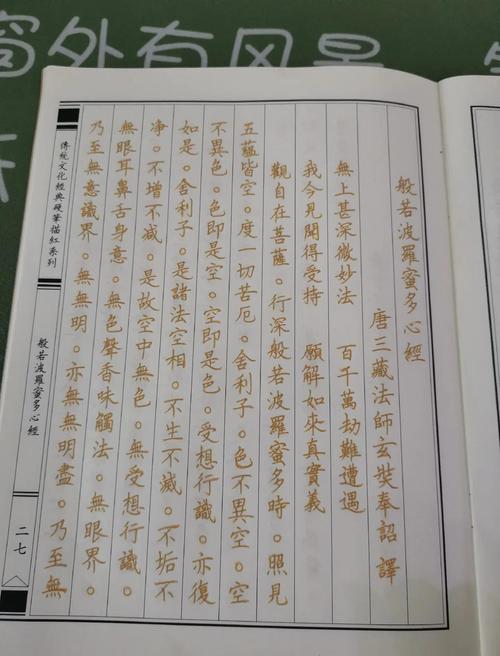 窗外有风景
般若波羅蜜多心經
唐三藏法師玄奘奉詔譯
無上甚深微妙法 百千萬劫難遭遇
我今見聞得受持 願解如來真實義
觀自在菩薩。行深般若波羅蜜多時。照見
五蘊皆空。度一切苦厄。舍利子。色不異空。空
不異色。色即是空。空即是色。受想行識。亦復
如是。舍利子。是諸法空相。不生不滅。不垢不
淨。不增不减。是故空中無色。無受想行識。
無眼耳鼻舌身意。無色聲香味觸法。無眼界。
乃至無意識界。無無明。亦無無明盡。乃至無
傳統文化經典硬筆描紅系列
般若波羅蜜多心經
二七